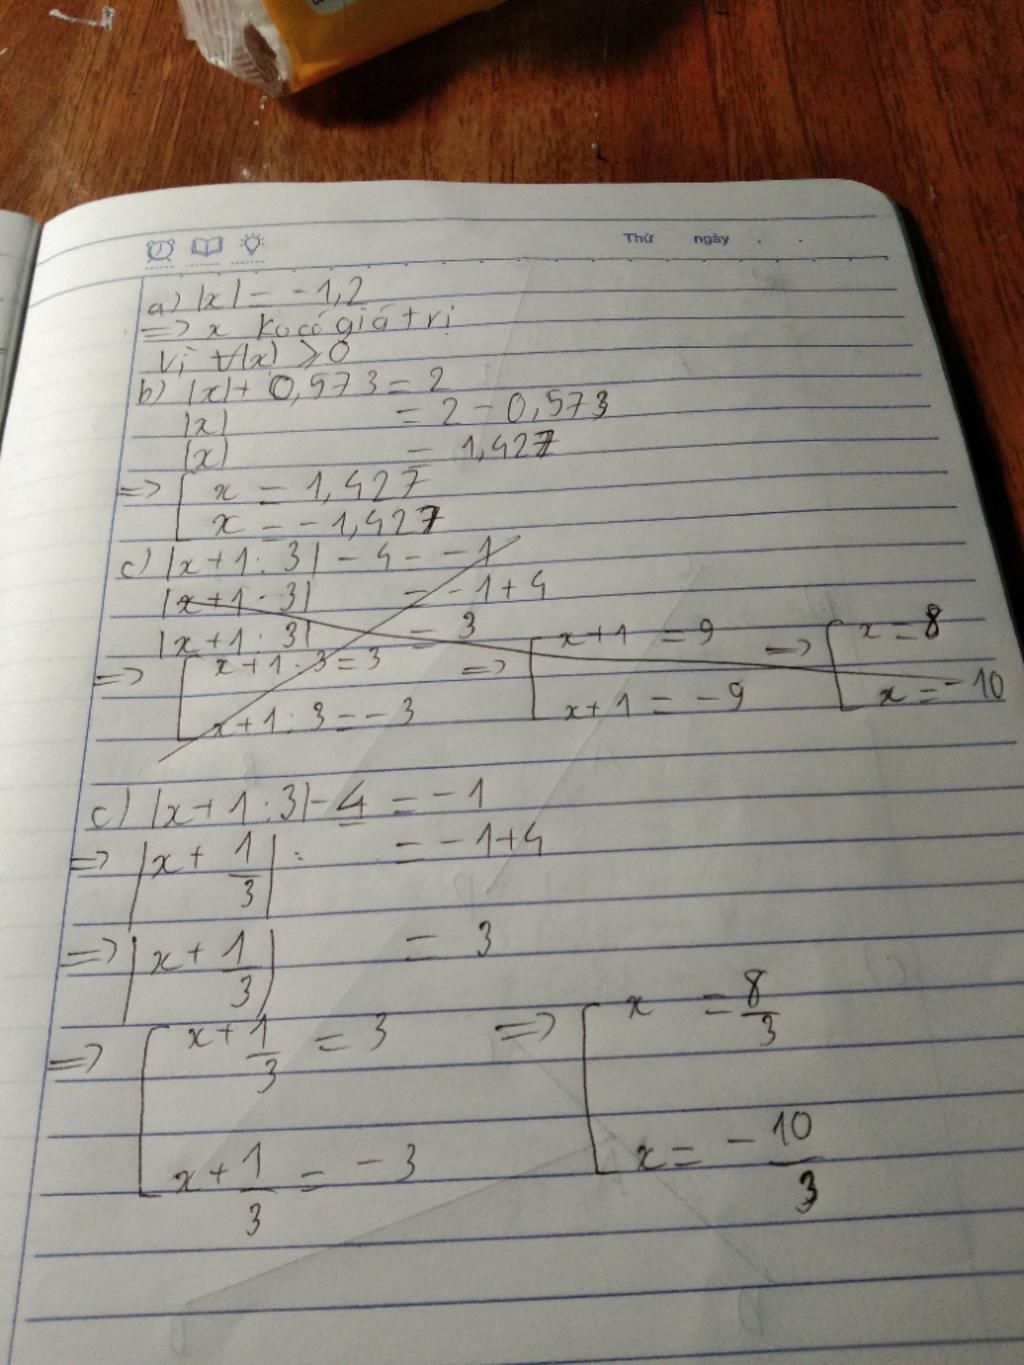 Thứ ngày . .
a) |x| = -1,2
=> x ko có giá trị
Vì ∀|x| ⩾ 0
b) |x| + 0,573 = 2
|x| = 2 - 0,573
|x| = 1,427
=> [ x = 1,427
x = -1,427
c) |x+1:3| - 4 = -1
|x+1:3| = -1+4
|x+1:3| = 3
=> [ x+1:3 = 3 => [ x+1 = 9 => [ x = 8
x+1:3 = -3 x+1 = -9 x = -10
c) |x+1:3| - 4 = -1
=> |x + 1/3| = -1+4
=> |x + 1/3| = 3
=> [ x + 1/3 = 3 => [ x = 8/3
x + 1/3 = -3 x = -10/3